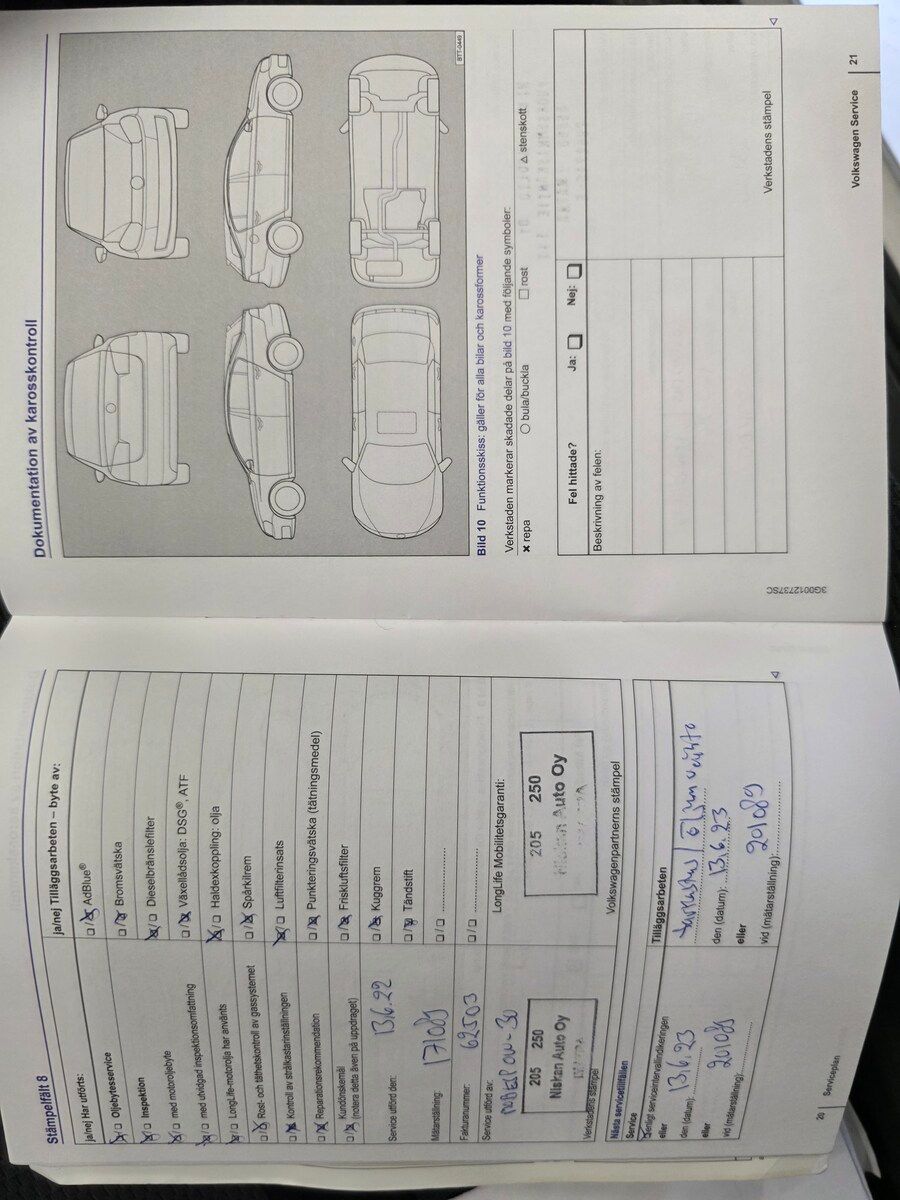 Stämpelfält 8
ja/nej Har utförts:
ja/nej Tilläggsarbeten – byte av:
Oljebytesservice
Inspektion
med motoroljebyte
med utvidgad inspektionsomfattning
LongLife-motorolja har använts
Rost- och täthetskontroll av gassystemet
Kontroll av strålkastarinställningen
Reparationsrekommendation
Kundönskemål
(notera detta även på uppdraget)
AdBlue®
Bromsvätska
Dieselbränslefilter
Växellådsolja: DSG®, ATF
Haldexkoppling: olja
Spårkilrem
Luftfilterinsats
Punkteringsvätska (tätningsmedel)
Friskluftsfilter
Kuggrem
Tändstift
Service utförd den: 13.6.22
Mätarställning: 171089
Fakturanummer: 62503
Service utförd av:
205 250
Niskan Auto Oy
Verkstadens stämpel
LongLife Mobilitetsgaranti:
205 250
Niskan Auto Oy
Volkswagenpartnerns stämpel
Nästa servicetillfällen
Service
enligt serviceintervallindikeringen
eller
den (datum): 13.6.23
eller
vid (mätarställning): 201089
Tilläggsarbeten
den (datum): 13.6.23
eller
vid (mätarställning): 201089
20 Serviceplan
Dokumentation av karosskontroll
BTT-0449
Bild 10 Funktionsskiss: gäller för alla bilar och karossformer
Verkstaden markerar skadade delar på bild 10 med följande symboler:
× repa ○ bula/buckla □ rost △ stenskott
Fel hittade? Ja: Nej:
Beskrivning av felen:
Verkstadens stämpel
3G0012737SC
Volkswagen Service 21